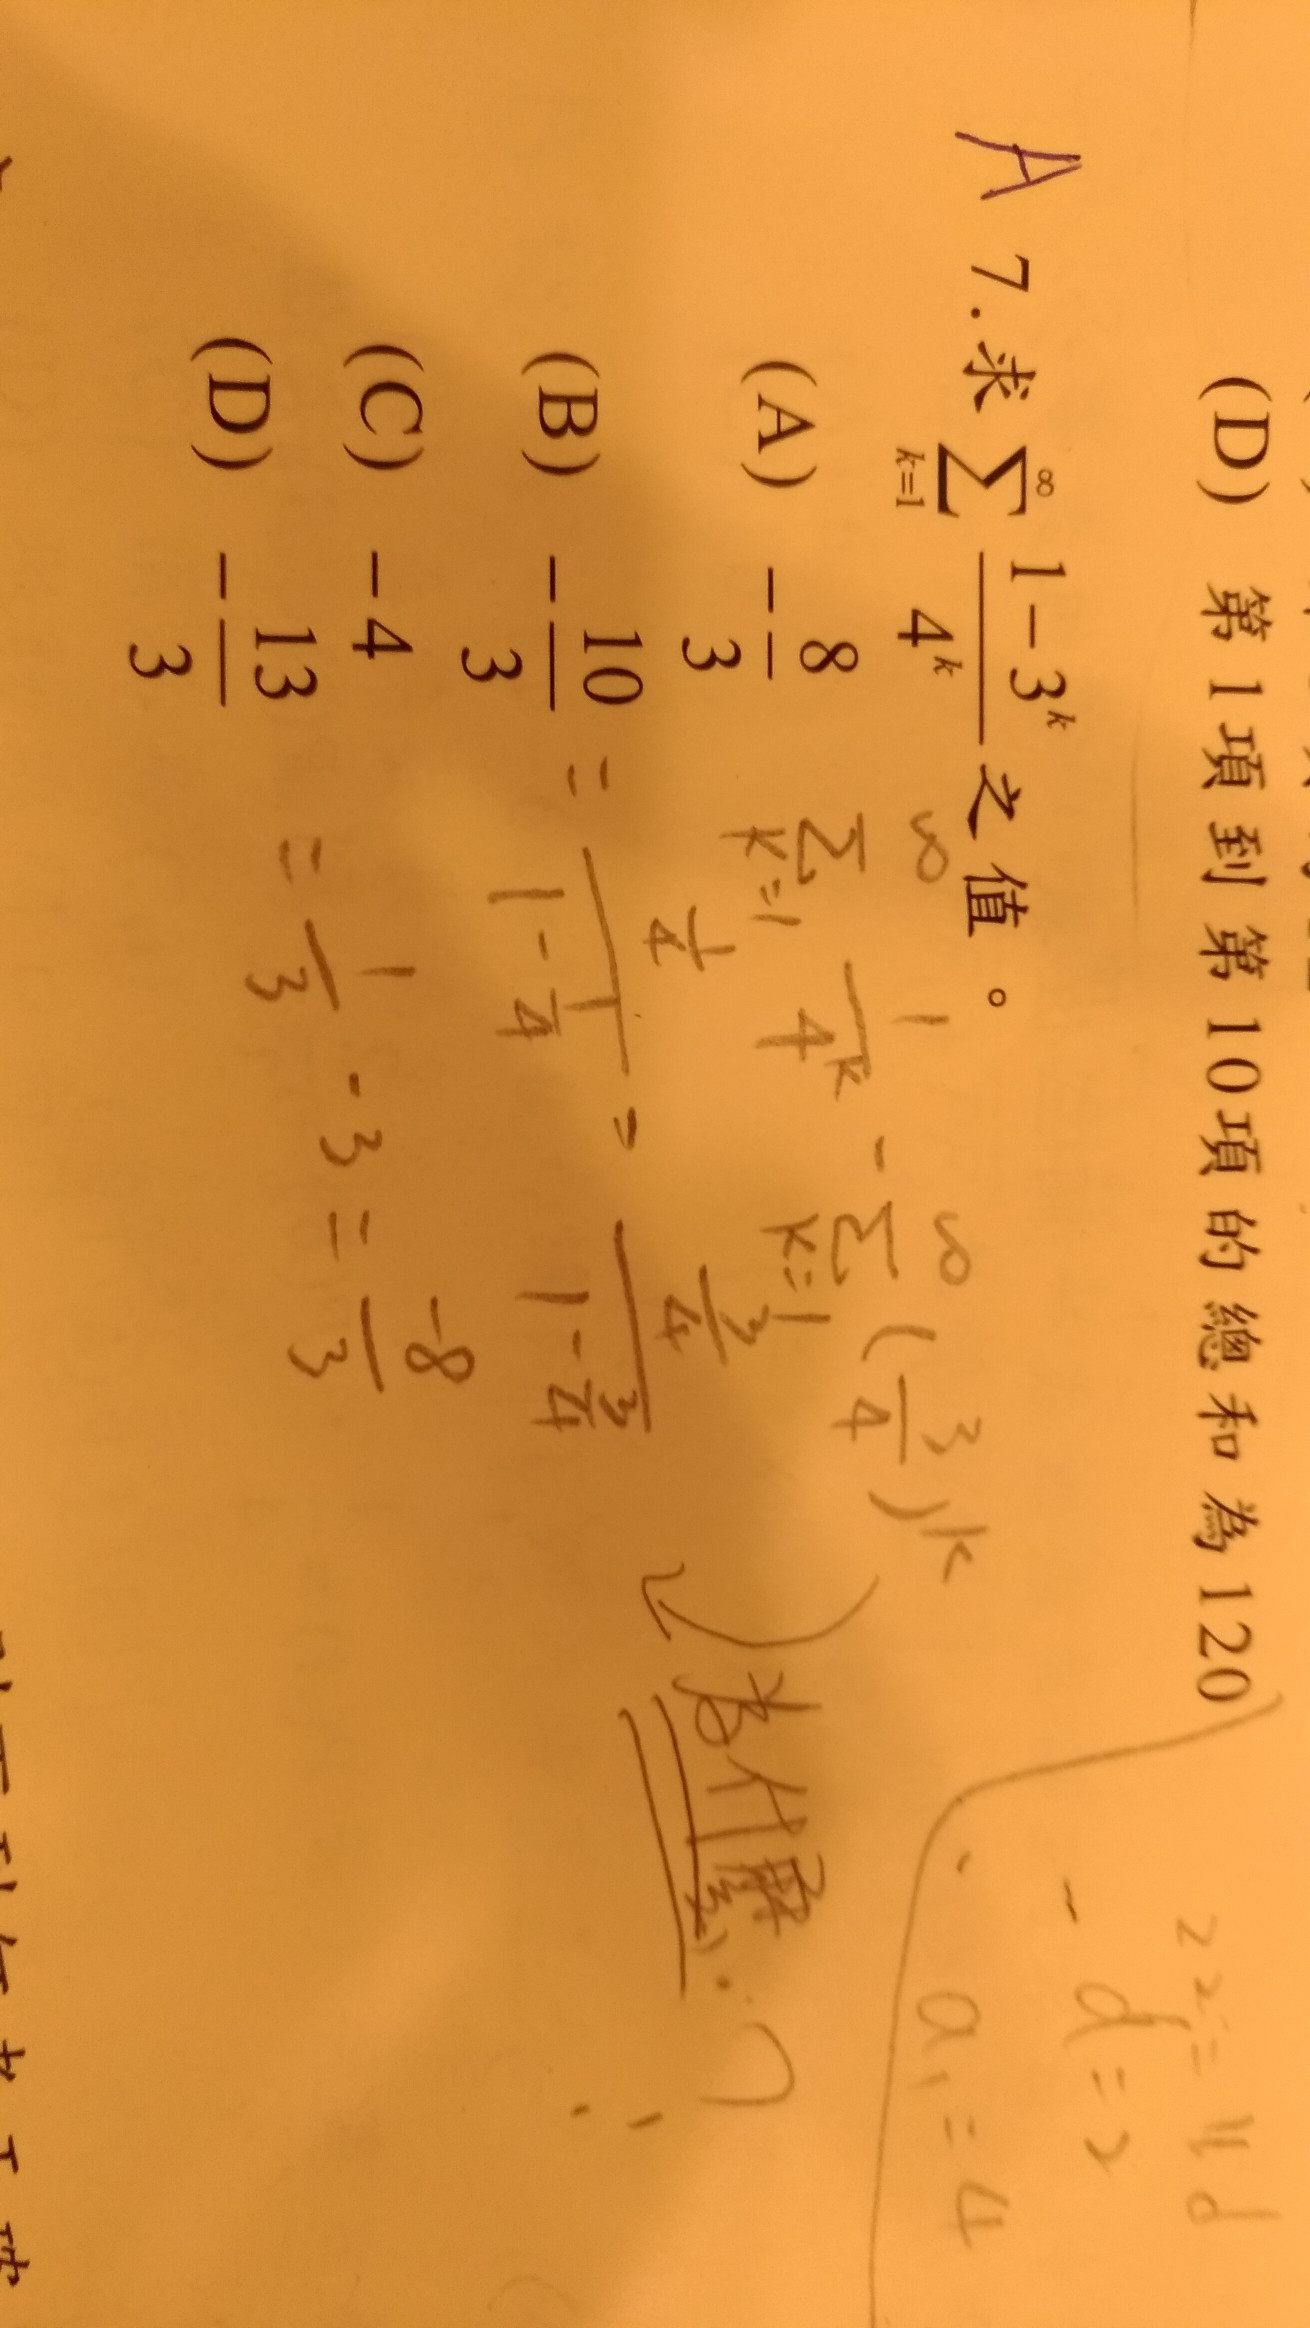 (D) 第1項到第10項的總和為120
22=11d
-d=2
a₁=4
A 7.求 \sum_{k=1}^{∞} \frac{1-3^k}{4^k} 之值。
(A) -\frac{8}{3}
(B) -\frac{10}{3}
(C) -4
(D) -\frac{13}{3}
\sum_{k=1}^{∞} \frac{1}{4^k} - \sum_{k=1}^{∞} (\frac{3}{4})^k
= \frac{\frac{1}{4}}{1-\frac{1}{4}} - \frac{\frac{3}{4}}{1-\frac{3}{4}}
= \frac{1}{3} - 3 = \frac{-8}{3}